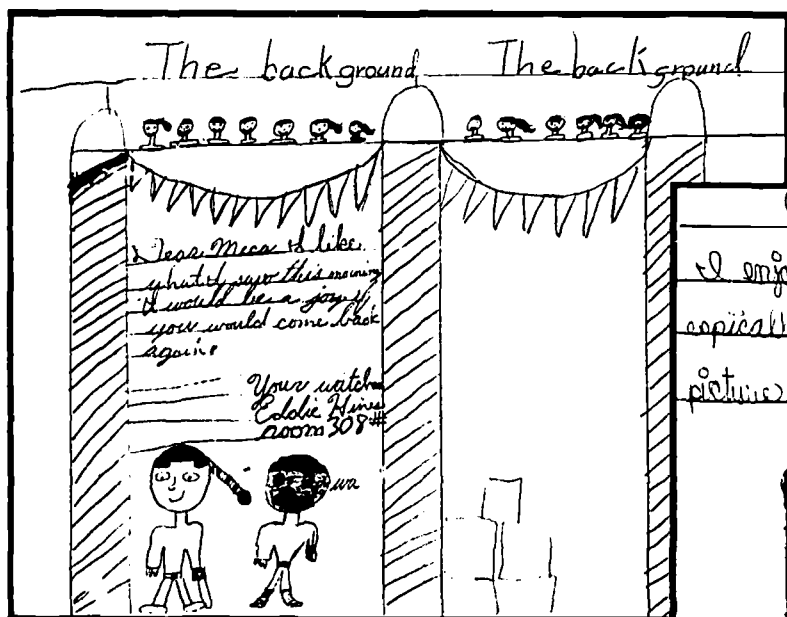 The background The background
Dear Meca I like
what I saw this morning
it would be a joy if
you would come back
again.
Your watcher
Eddie Hines
room 308#
wa
I enjo
espicall
picture